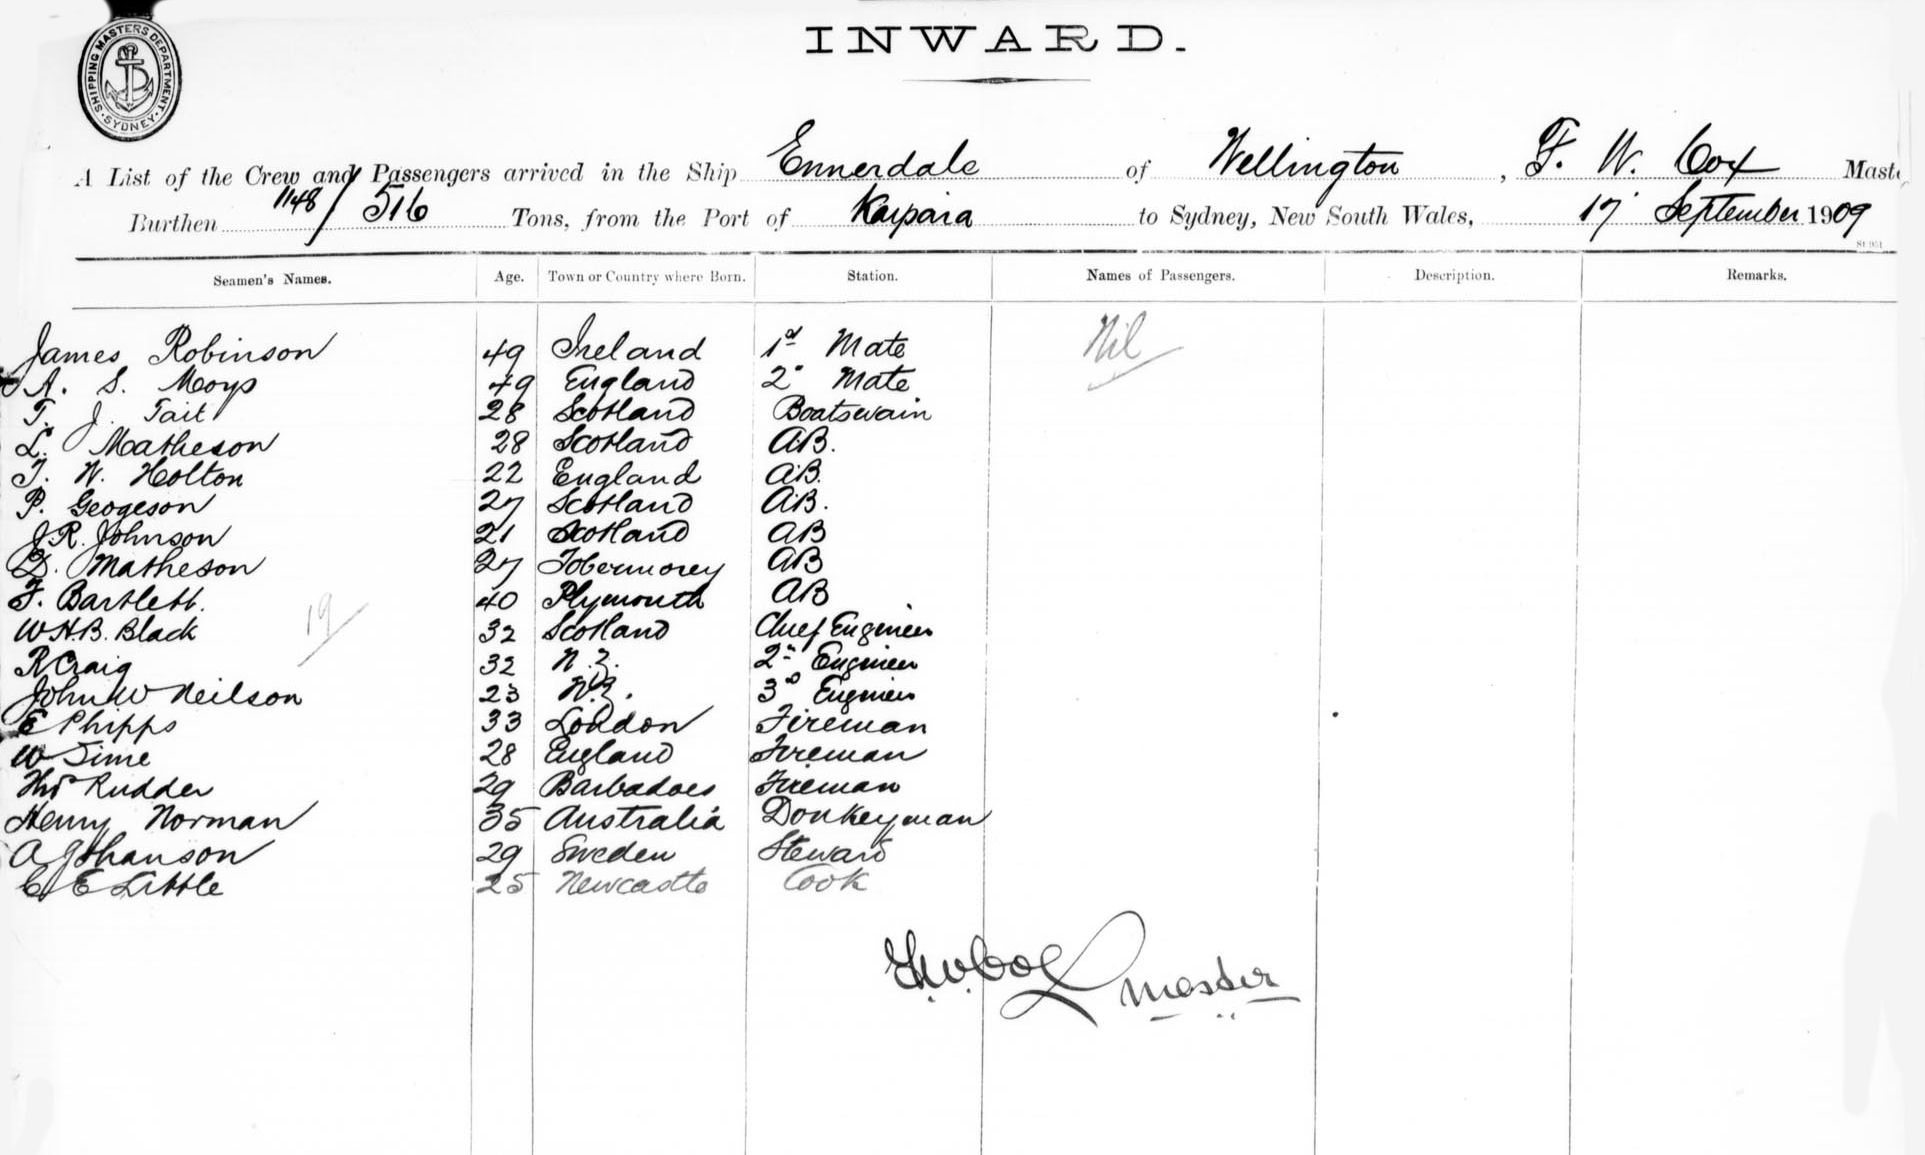 INWARD.
SHIPPING MASTERS DEPARTMENT
SYDNEY
A List of the Crew and Passengers arrived in the Ship Ennerdale of Wellington, F. W. Cox Maste
Burthen 1148/516 Tons, from the Port of Kaipara to Sydney, New South Wales, 17 September 1909
Seamen's Names. Age. Town or Country where Born. Station. Names of Passengers. Description. Remarks.
James Robinson 49 Ireland 1st Mate Nil
A. S. Moys 49 England 2" Mate
T. J. Tait 28 Scotland Boatswain
L. Matheson 28 Scotland AB.
T. W. Holton 22 England AB.
P. Geogeson 27 Scotland AB.
J.R. Johnson 21 Scotland AB
D. Matheson 27 Tobermorey AB
F. Bartlett. 40 Plymouth AB
19
W.H.B. Black 32 Scotland Chief Engineer
R Craig 32 N.Z. 2nd Engineer
John W Neilson 23 N.Z. 3d Engineer
E Phipps 33 London Fireman
W Sime 28 England Fireman
Thos Rudder 29 Barbadoes Fireman
Henry Norman 35 Australia Donkeyman
A Johanson 29 Sweden Steward
C E Little 25 Newcastle Cook
F.W. Cox Master